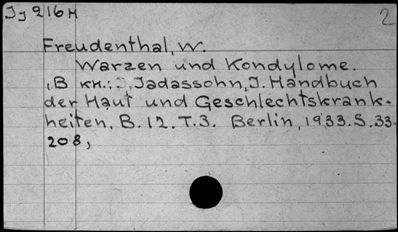 Jj 216 H
2
Freudenthal, W.
Warzen und Kondylome.
, B кн.: J. Jadassohn, J. Handbuch
der Haut und Geschlechtskrank-
heiten, B. 12. T. 3. Berlin, 1933. S. 33-
208,